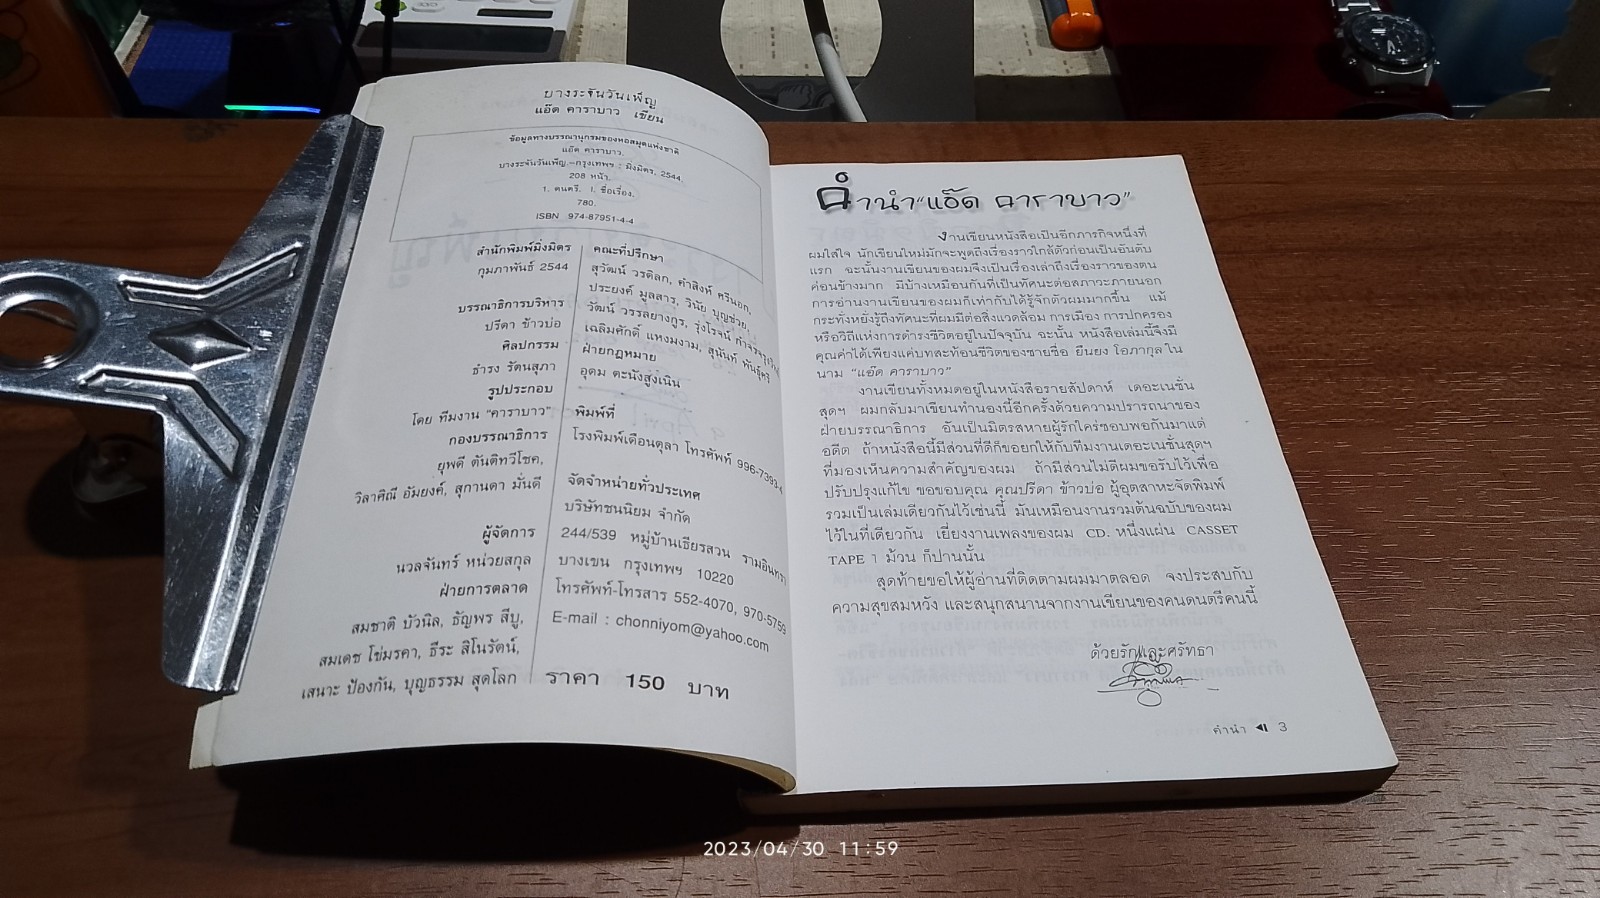 บางระจันวันเพ็ญ
แอ๊ด คาราบาว เขียน
ข้อมูลทางบรรณานุกรมของหอสมุดแห่งชาติ
แอ๊ด คาราบาว.
บางระจันวันเพ็ญ.--กรุงเทพฯ : มิ่งมิตร, 2544.
208 หน้า.
1. ดนตรี. I. ชื่อเรื่อง.
780.
ISBN 974-87951-4-4
สำนักพิมพ์มิ่งมิตร
กุมภาพันธ์ 2544
บรรณาธิการบริหาร
ปรีดา ข้าวบ่อ
ศิลปกรรม
ธำรง รัตนสุภา
รูปประกอบ
โดย ทีมงาน "คาราบาว"
กองบรรณาธิการ
ยุพดี ตันติทวีโชค,
วิลาศิณี อัมยงค์, สุกานดา มั่นดี
ผู้จัดการ
นวลจันทร์ หน่วยสกุล
ฝ่ายการตลาด
สมชาติ บัวนิล, ธัญพร สีบู,
สมเดช โข่มรคา, ธีระ สิโนรัตน์,
เสนาะ ป้องกัน, บุญธรรม สุดโลก
คณะที่ปรึกษา
สุวัฒน์ วรดิลก, คำสิงห์ ศรีนอก,
ประยงค์ มูลสาร, วินัย บุญช่วย,
วัฒน์ วรรลยางกูร, รุ่งโรจน์
เฉลิมศักดิ์ แหงมงาม, สุนันท์ พันธุ์ศรี
ฝ่ายกฎหมาย
อุดม ตะนังสูงเนิน
พิมพ์ที่
โรงพิมพ์เดือนตุลา โทรศัพท์ 996-7393-4
จัดจำหน่ายทั่วประเทศ
บริษัทชนนิยม จำกัด
244/539 หมู่บ้านเธียรสวน รามอินทรา
บางเขน กรุงเทพฯ 10220
โทรศัพท์-โทรสาร 552-4070, 970-5759
E-mail : chonniyom@yahoo.com
ราคา 150 บาท
คำนำ "แอ๊ด คาราบาว"
งานเขียนหนังสือเป็นอีกภารกิจหนึ่งที่
ผมใส่ใจ นักเขียนใหม่มักจะพูดถึงเรื่องราวใกล้ตัวก่อนเป็นอันดับ
แรก ฉะนั้นงานเขียนของผมจึงเป็นเรื่องเล่าถึงเรื่องราวของตน
ค่อนข้างมาก มีบ้างเหมือนกันที่เป็นทัศนะต่อสภาวะภายนอก
การอ่านงานเขียนของผมก็เท่ากับได้รู้จักตัวผมมากขึ้น แม้
กระทั่งหยั่งรู้ถึงทัศนะที่ผมมีต่อสิ่งแวดล้อม การเมือง การปกครอง
หรือวิถีแห่งการดำรงชีวิตอยู่ในปัจจุบัน ฉะนั้น หนังสือเล่มนี้จึงมี
คุณค่าได้เพียงแค่บทสะท้อนชีวิตของชายชื่อ ยืนยง โอภากุล ใน
นาม "แอ๊ด คาราบาว"
งานเขียนทั้งหมดอยู่ในหนังสือรายสัปดาห์ เดอะเนชั่น
สุดฯ ผมกลับมาเขียนทำนองนี้อีกครั้งด้วยความปรารถนาของ
ฝ่ายบรรณาธิการ อันเป็นมิตรสหายผู้รักใคร่ชอบพอกันมาแต่
อดีต ถ้าหนังสือนี้มีส่วนที่ดีก็ขอยกให้กับทีมงานเดอะเนชั่นสุดฯ
ที่มองเห็นความสำคัญของผม ถ้ามีส่วนไม่ดีผมขอรับไว้เพื่อ
ปรับปรุงแก้ไข ขอขอบคุณ คุณปรีดา ข้าวบ่อ ผู้อุตสาหะจัดพิมพ์
รวมเป็นเล่มเดียวกันไว้เช่นนี้ มันเหมือนงานรวมต้นฉบับของผม
ไว้ในที่เดียวกัน เยี่ยงงานเพลงของผม CD. หนึ่งแผ่น CASSET
TAPE 1 ม้วน ก็ปานนั้น
สุดท้ายขอให้ผู้อ่านที่ติดตามผมมาตลอด จงประสบกับ
ความสุขสมหวัง และสนุกสนานจากงานเขียนของคนดนตรีคนนี้
ด้วยรักและศรัทธา
คำนำ 3
2023/04/30 11:59